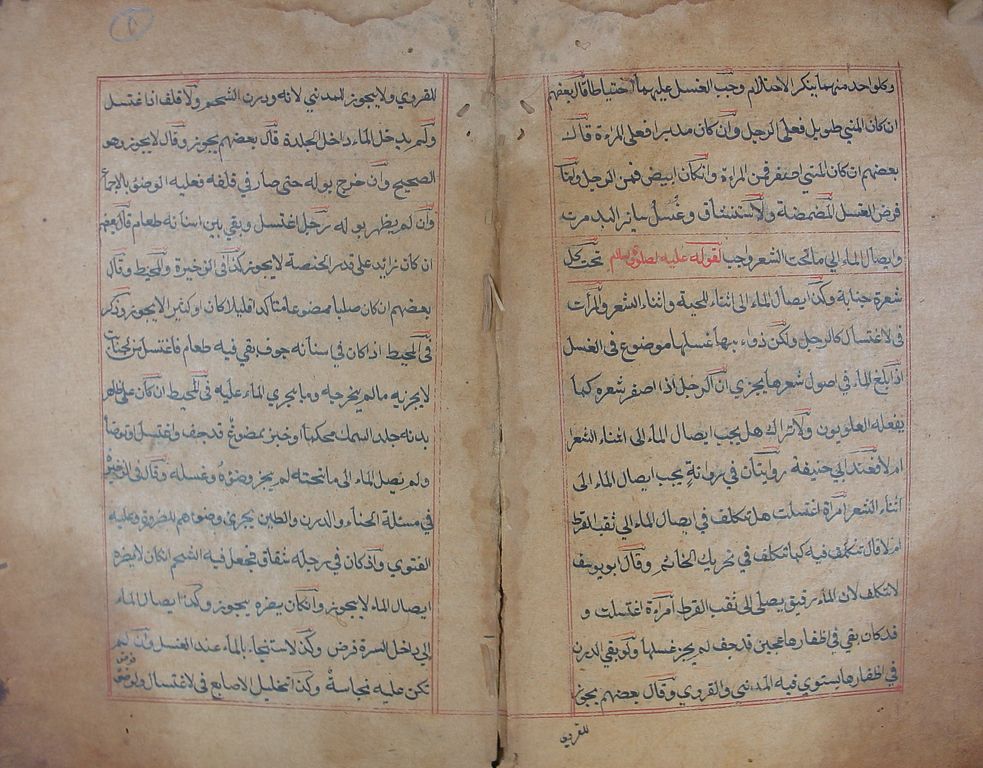 وكل واحد منهما ينكر الاحتلام وجب الغسل عليهما احتياطا قال بعضهم
ان كان المني طويل فعلى الرجل وان كان مدبرا فعلى المرءة قال
بعضهم ان كان المني اصفر فمن المرءة وانكان ابيض فمن الرجل
فرض الغسل المضمضة ولاستنشاق وغسل سايز البد مرت
وايصال الماء الى ما تحت الشعر واجب لقوله عليه لصلوة والسلام تحت كل
شعرة جنابة وكذا ايصال الماء الى اثناء اللحية واثناء الشعر والمرأت
فى لاغتسال كالرجل ولكن ذواء بيها غسلها موضوع فى الغسل
اذا بلغ الماء فى اصول شعرها يجزي ان الرجل اذا اصفر شعره كما
يفعله العلويون ولاتراك هل يجب ايصال الماء الى اثناء الشعر
ام لا فعند ابي حنيفة روايتان في رواية يجب ايصال الماء الى
اثناء الشعر امرأة اغتسلت هل تتكلف في ايصال الماء الى ثقب القرط
ام لا قال تتكلف فيه كما تتكلف في تحريك الخاتم وقال ابو يوسف
لا تتكلف لان الماء رقيق يصلى الى ثقب القرط امراءة اغتسلت و
قد كان بقي في اظفارها عجين قد جف لم يجز غسلها ولو بقي الدرن
في اظفارها يستوي فيه المدنني والقروي وقال بعضهم يجزئ
للقروي
للقروي ولا يجوز للمدني لانه ودرن الشحم ولاقلف اذا اغتسل
ولم يدخل الماء داخل الجلدة قال بعضهم يجوز وقال لا يجوز وهو
الصحيح وان خرج بوله حتى صار في قلفه فعليه الوضوء بالاجماع
وان لم يظهر بوله رجل اغتسل وبقي بين اسنانه طعام قال بعضهم
ان كان زائد على قدر الحنصة لا يجوز كذا فى الوخيرة والمحيط وقال
بعضهم ان كان صلبا ممضوعا متاكدا قليلا كان او كثير الا يجوز وذكر
فى المحيط اذا كان في اسنانه جوف بقي فيه طعام فاغتسل من
لا يجزيه ما لم يخرجه وما يجري الماء عليه فى المحيط ان كان على ظاهر
بدنه جلد السمك وخبز ممضوغ قد جف واغتسل او توضأ
ولم يصل الماء الى ما تحته لم يجز وضؤه وغسله وقال فى الذخيرة
في مسئلة الحناء والدرن والطين يجزئ وضوءهم للضرورة وعليه
الفتوي واذ كان في رجله شقاق فجعل فيه الشحم لكان لا يضره
ايصال الماء لا يجوز وانكان يضره يجوز وكذا ايصال الماء
الى داخل السرة فرض وكذا لاستنجاء بالماء عند الغسل وان لم
تكن عليه نجاسة وكذا تخليل الاصابع فى لاغتسال ولوضوء
فرض